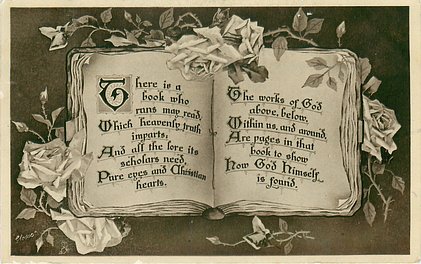 There is a
book who
runs may read,
Which heavenly truth
imparts;
And all the lore its
scholars need,
Pure eyes and Christian
hearts.
The works of God
above, below,
Within us, and around,
Are pages in that
book to show
How God Himself
is found.